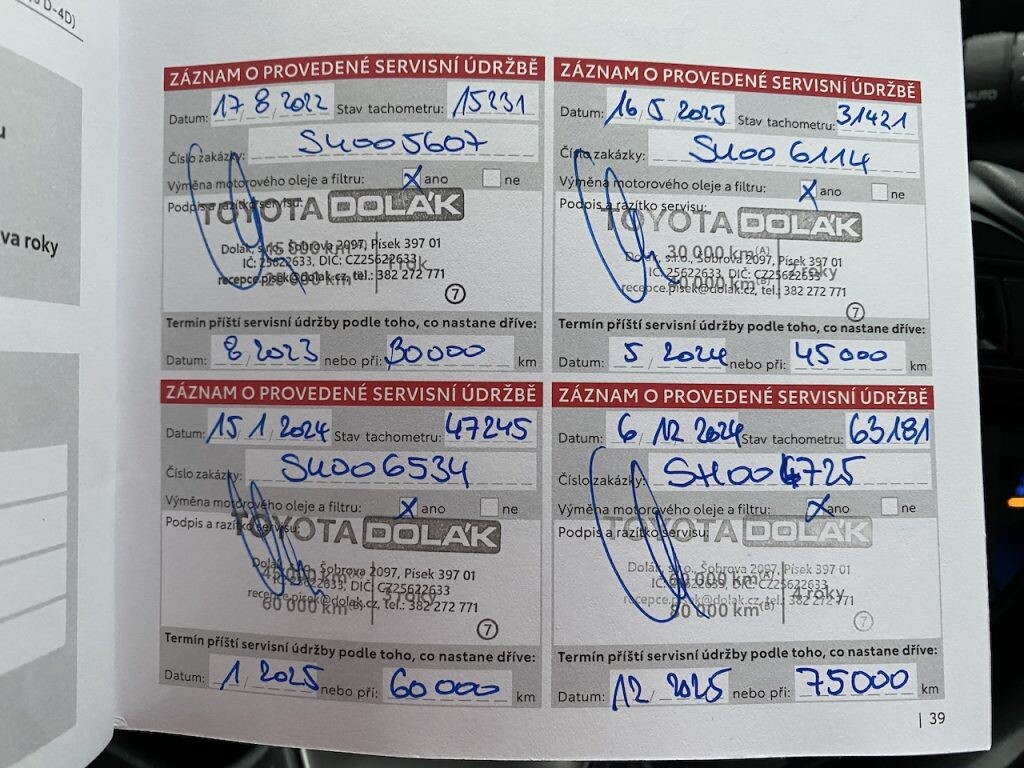 D-4D)
va roky
ZÁZNAM O PROVEDENÉ SERVISNÍ ÚDRŽBĚ
Datum: 17 8 2022 Stav tachometru: 15231
Číslo zakázky: SU005607
Výměna motorového oleje a filtru: X ano ne
Podpis a razítko servisu:
TOYOTA DOLÁK
Dolák, s.r.o., Šobrova 2097, Písek 397 01
15 000 km 1 rok
IČ: 25622633, DIČ: CZ25622633
recepce.pisek@dolak.cz, tel.: 382 272 771
20 000 km
7
Termín příští servisní údržby podle toho, co nastane dříve:
Datum: 8 2023 nebo při: 30000 km
ZÁZNAM O PROVEDENÉ SERVISNÍ ÚDRŽBĚ
Datum: 16 5 2023 Stav tachometru: 31421
Číslo zakázky: SU006114
Výměna motorového oleje a filtru: X ano ne
Podpis a razítko servisu:
TOYOTA DOLÁK
30 000 km(A)
Dolák, s.r.o., Šobrova 2097, Písek 397 01
IČ: 25622633, DIČ: CZ25622633
2 roky
recepce.pisek@dolak.cz, tel.: 382 272 771
7
Termín příští servisní údržby podle toho, co nastane dříve:
Datum: 5 / 2024 nebo při: 45000 km
ZÁZNAM O PROVEDENÉ SERVISNÍ ÚDRŽBĚ
Datum: 15 1 2024 Stav tachometru: 47245
Číslo zakázky: SU006534
Výměna motorového oleje a filtru: X ano ne
Podpis a razítko servisu:
TOYOTA DOLÁK
Dolák, s.r.o., Šobrova 2097, Písek 397 01
45 000 km(A)
IČ: 25622633, DIČ: CZ25622633
3 roky
recepce.pisek@dolak.cz, tel.: 382 272 771
60 000 km(B)
7
Termín příští servisní údržby podle toho, co nastane dříve:
Datum: 1 2025 nebo při: 60000 km
ZÁZNAM O PROVEDENÉ SERVISNÍ ÚDRŽBĚ
Datum: 6 12 2024 Stav tachometru: 63181
Číslo zakázky: SH004725
Výměna motorového oleje a filtru: X ano ne
Podpis a razítko servisu:
TOYOTA DOLÁK
Dolák, s.r.o., Šobrova 2097, Písek 397 01
60 000 km(A)
IČ: 25622633, DIČ: CZ25622633
4 roky
recepce.pisek@dolak.cz, tel.: 382 272 771
80 000 km(B)
7
Termín příští servisní údržby podle toho, co nastane dříve:
Datum: 12 2025 nebo při: 75000 km
| 39
AUTO